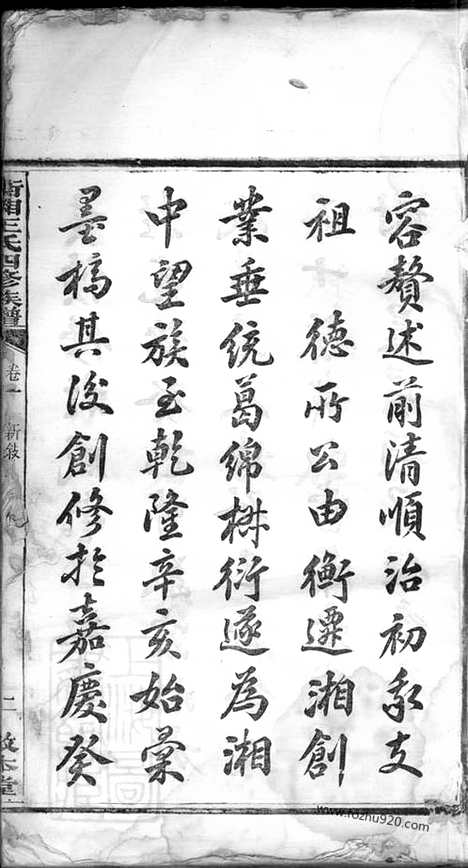 容贅述前清順治初我支
祖 德所公由衡遷湘創
業垂統葛綿椒衍遂為湘
中望族至乾隆辛亥始彙
墨稿其後創修於嘉慶癸
衡湘王氏四修族譜
卷一
新敍
二
敦本堂
www.rozhu920.com